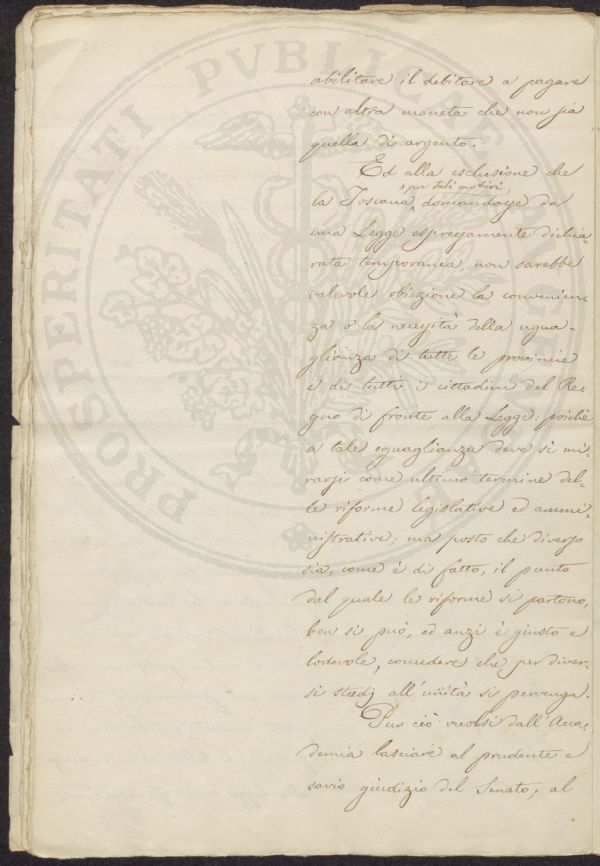 abilitare il debitore a pagare
con altra moneta che non già
quella di argento.
Ed alla esclusione che
per tali motivi,
la Toscana domandasse da
una Legge espressamente dichia-
rata temporanea, non sarebbe
valevole obiezione la convenien-
za o la necessità della ugua-
glianza di tutte le provincie
e di tutti i cittadini del Re-
gno di fronte alla Legge: poichè
a tale eguaglianza deve sì mi-
rarsi come ultimo termine del-
le riforme legislative ed ammi-
nistrative; ma posto che diverso
sia, come è di fatto, il punto
dal quale le riforme si partono,
ben si può, ed anzi è giusto e
lodevole, concedere che per diver-
si stadj all'unità si pervenga.
Pur ciò vuolsi dall'Acca-
demia lasciare al prudente e
savio giudizio del Senato; al
PROSPERITATI PVBLICAE